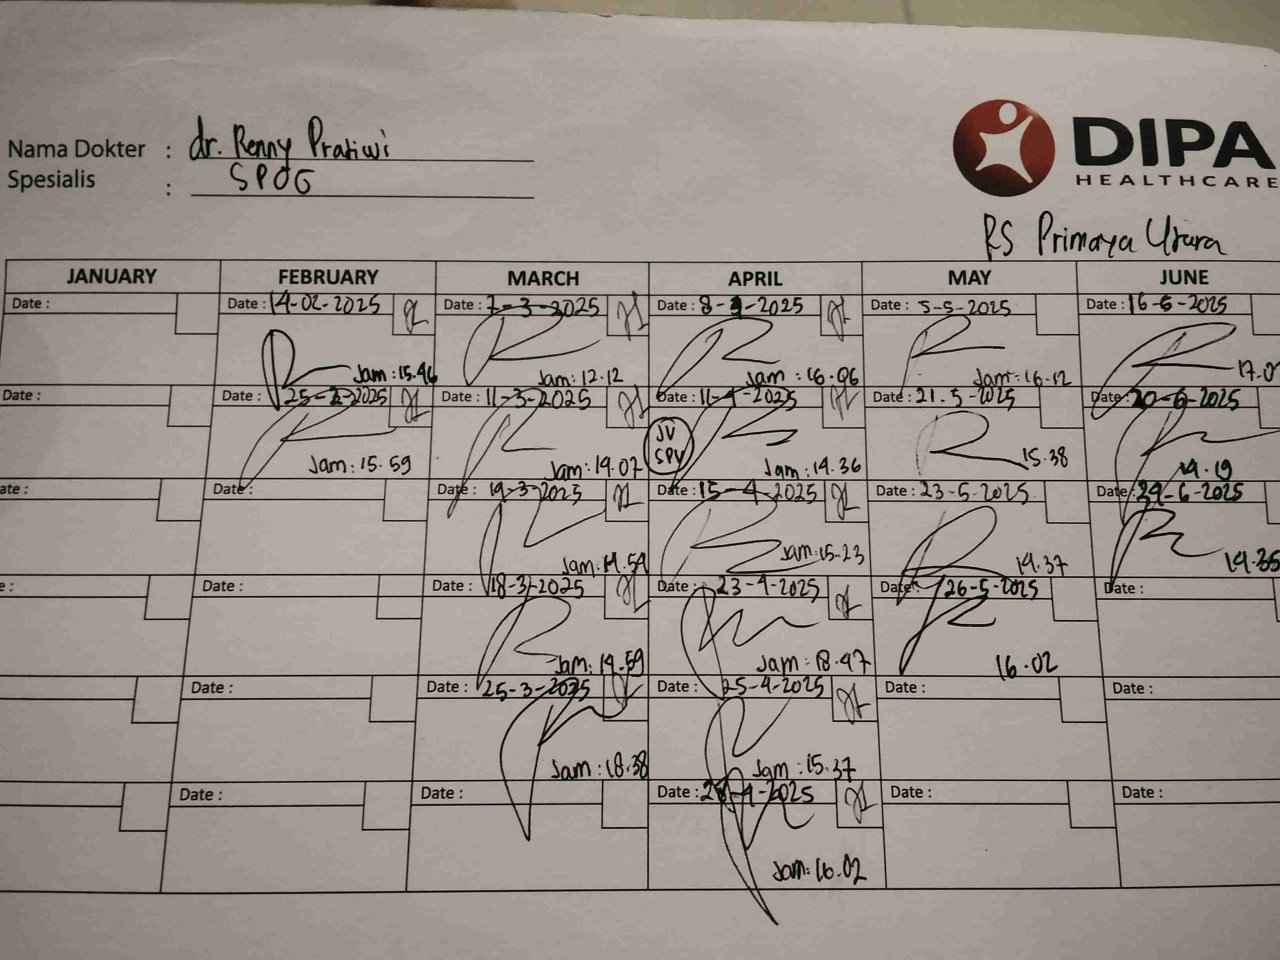 Nama Dokter : dr. Renny Pratiwi
Spesialis : SPOG
DIPA
HEALTHCARE
RS Primaya Utara
JANUARY FEBRUARY MARCH APRIL MAY JUNE
Date : Date : 14-02-2025 Date : 7-3-2025 Date : 8-4-2025 Date : 5-5-2025 Date : 16-6-2025
Jam : 15.46 Jam : 12.12 Jam : 16.06 Jam : 16.12
Date : Date : 25-2-2025 Date : 11-3-2025 Date : 11-4-2025 Date : 21.5-2025 Date : 20-6-2025
JV
SPV
Jam : 15.59 Jam : 14.07 Jam : 14.36 15.38 14.19
ate : Date : Date : 2025 Date : 15-4-2025 Date : 23-5-2025 Date : 24-6-2025
Jam : 14.59 Jam : 15-23 14.37
e : Date : 18-3-2025 Date : 23-4-2025 Date : 26-5-2025 Date :
Jam : 14.59 Jam : 18.47 16.02
Date : Date : 25-3-2025 Date : 25-4-2025 Date : Date :
Jam : 18.38 Jam : 15.37
Date : Date : Date : Date : Date :
Jam : 16.02